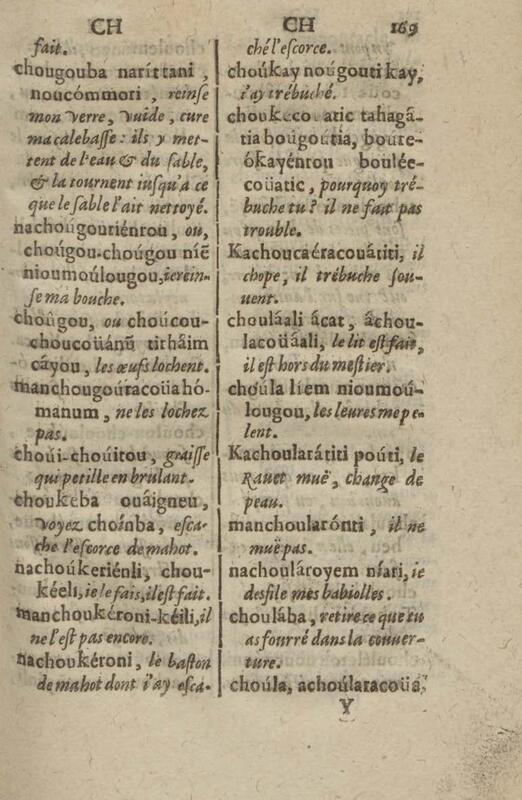 CH
CH 169
fait.
chougouba naríttani,
noucómmori, reinse
mon verre, vuide, cure
ma calebasse: ils y met-
tent de l'eau & du sable,
& la tournent iusqu'a ce
que le sable l'ait nettoyé.
nachoúgouriénrou, ou,
choúgou-choúgou níẽ
nioumoúlougou, ie rein-
se ma bouche.
choûgou, ou choúcou-
choucoüánũ tirháim
cáyou, les œufs lochent.
manchougoúracoüa hó-
manum, ne les lochez
pas.
chouí-chouítou, graisse
qui petille en brûlant.
choukeba ouâigneu,
voyez choínba, esca-
che l'escorce de mahot.
nachoúkeriénli, chou-
kéeli, ie le fais, il est fait.
manchoukéroni-kéili, il
ne l'est pas encore.
nachoukéroni, le baston
de mahot dont i'ay esca-
ché l'escorce.
choúkay noúgouti kay,
i'ay trébuché.
choukeco átic tahagâ-
tia bougoutía, boure-
ókayénrou boulée-
coüatic, pourquoy tré-
buche tu? il ne fait pas
trouble.
Kachoucaéracouâtiti, il
chope, il trébuche sou-
uent.
chouláali ácat, âchou-
lacoüáali, le lit est fait,
il est hors du mestier.
choúla liem nioumoú-
lougou, les leures me pe
lent.
Kachoularátiti poúti, le
Rauet muë, change de
peau.
manchoularónti, il ne
muë pas.
nachoulároyem níari, ie
desfile mes babiolles.
choulába, retire ce que tu
as fourré dans la couuer-
ture.
choúla, achoúlaracoüá,
Y